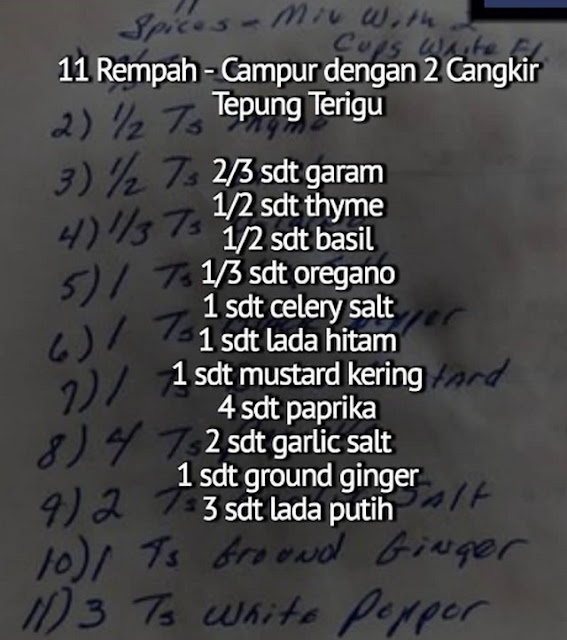 11
Spices - Mix With 2
Cups White Fl
11 Rempah - Campur dengan 2 Cangkir
Tepung Terigu
2) 1/2 Ts Thyme
3) 1/2 Ts
2/3 sdt garam
1/2 sdt thyme
4) 1/3 Ts
1/2 sdt basil
5) 1 Ts
1/3 sdt oregano
1 sdt celery salt
6) 1 Ts
1 sdt lada hitam
7) 1 Ts
1 sdt mustard kering
4 sdt paprika
8) 4 Ts
2 sdt garlic salt
1 sdt ground ginger
9) 2 Ts Salt
3 sdt lada putih
10) 1 Ts Ground Ginger
11) 3 Ts White Pepper